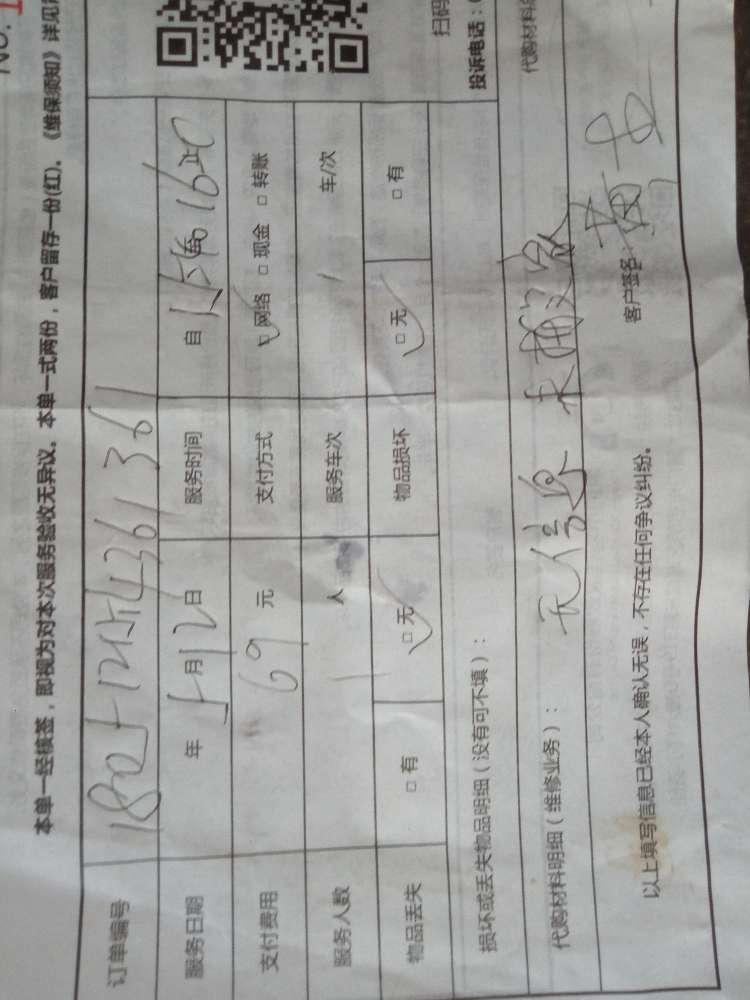 NO. 1
本单一经核签，即视为对本次服务验收无异议。本单一式两份，客户留存一份(红)。《维保须知》详见
扫码
投诉电话：
订单编号
服务日期 年 5月12日 服务时间 自
支付费用 69 元 支付方式 □网络 □现金 □转账
服务人数 1 人 服务车次 1 车/次
物品丢失 □有 □无 物品损坏 □无 □有
损坏或丢失物品明细（没有可不填）：
代购材料
代购材料明细（维修业务）：
无信息
以上填写信息已经本人确认无误，不存在任何争议纠纷。 客户签名：